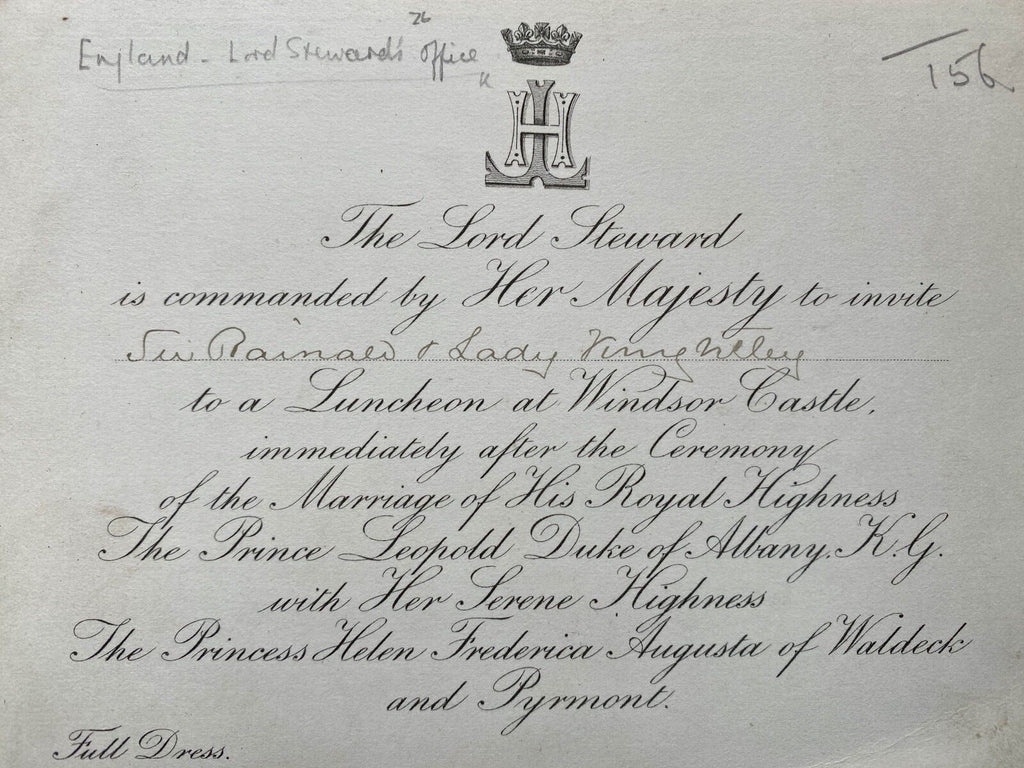 26
England - Lord Steward's Office
156
LH
The Lord Steward
is commanded by Her Majesty to invite
Sir Rainald & Lady Knightley
to a Luncheon at Windsor Castle,
immediately after the Ceremony
of the Marriage of His Royal Highness
The Prince Leopold Duke of Albany, K.G.
with Her Serene Highness
The Princess Helen Frederica Augusta of Waldeck
and Pyrmont.
Full Dress.